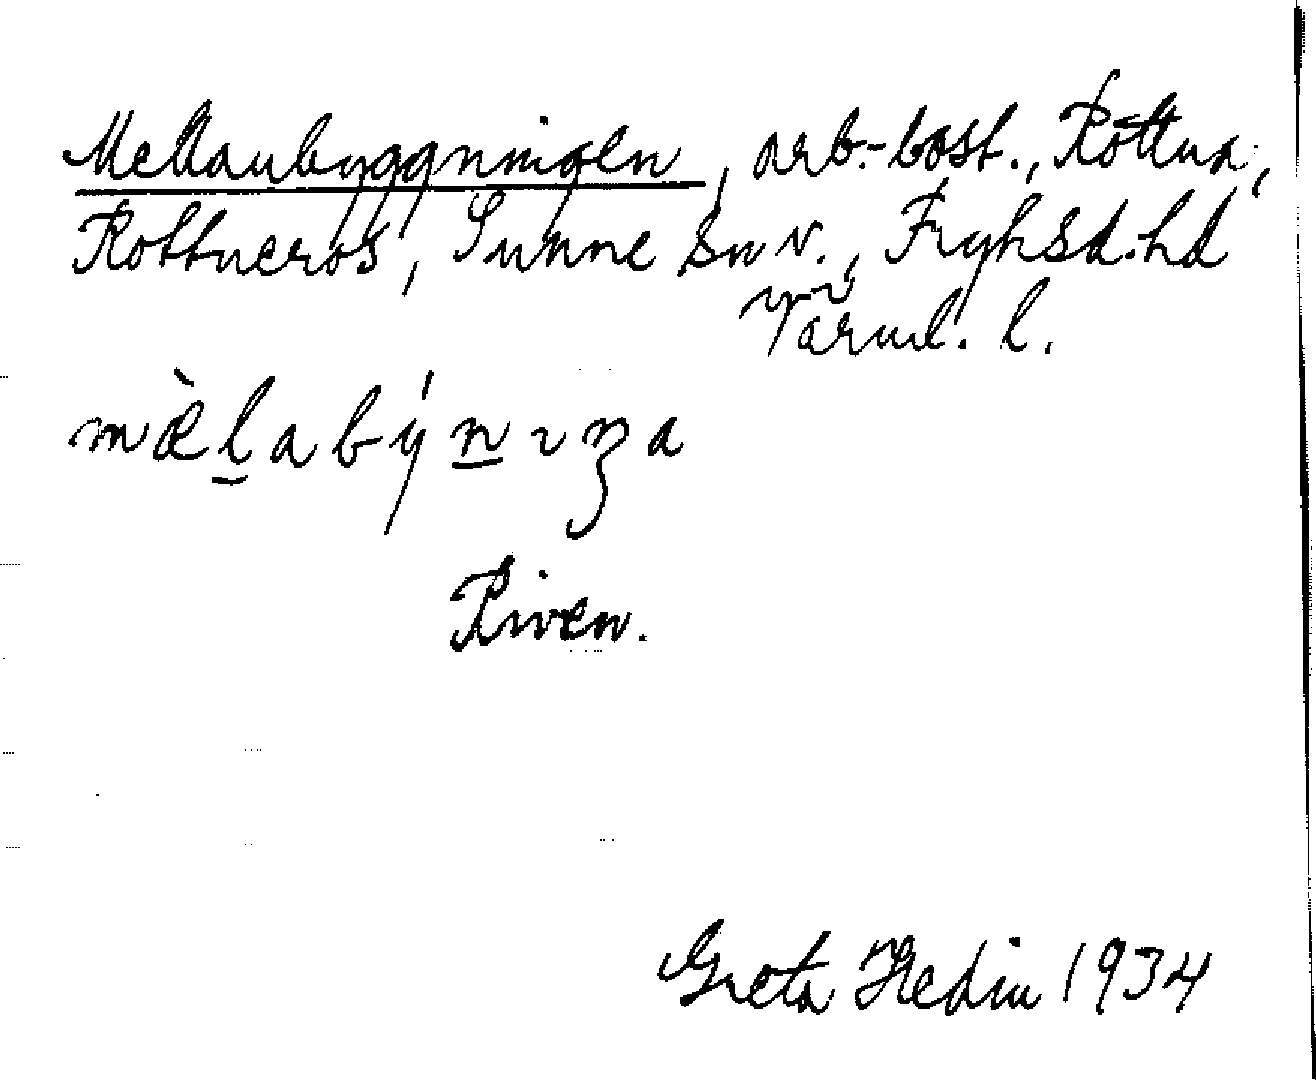 Mellanbyggningen, arb.-bost., Rottna,
Rottneros, Sunne sn v., Fryksd. hd
Värml. l.
mæ̀l̠abýn̠ıŋa
Riven.
Greta Hedin 1934